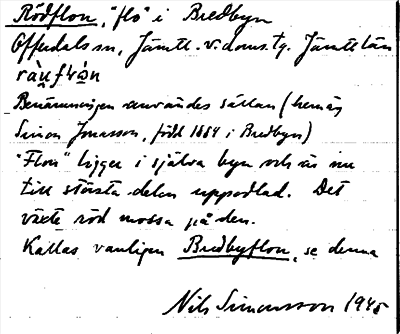 Rödflon, "flo" i Bredbyn
Offerdals sn, Jämtl. v. doms. tg. Jämtl. län
Benämningen användes sällan (hemm.äg.
Simon Jonasson, född 1884 i Bredbyn)
"Flon" ligger i själva byn och är nu
till största delen uppodlad. Det
växte röd mossa på den.
Kallas vanligen Bredbyflon, se denna
Nils Simonsson 1945